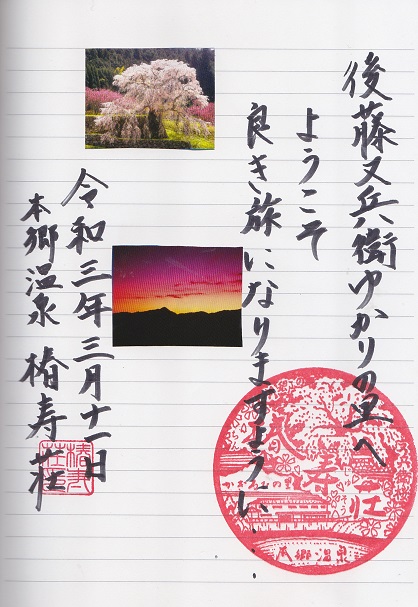 後藤又兵衛ゆかりの里へ
ようこそ
良き旅になりますように・・
令和三年三月十一日
本郷温泉 椿寿荘
椿寿荘
本郷温泉